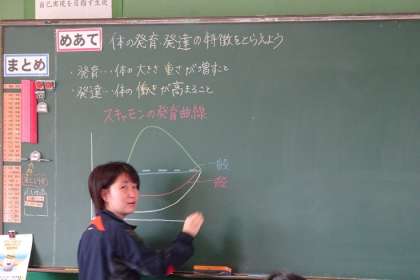 自己実現を目指す生徒
めあて
体の発育 発達の特徴をとらえよう
まとめ
・発育…体の大きさ 重さが増すこと
・発達…体の働きが高まること
スキャモンの発育曲線
一般